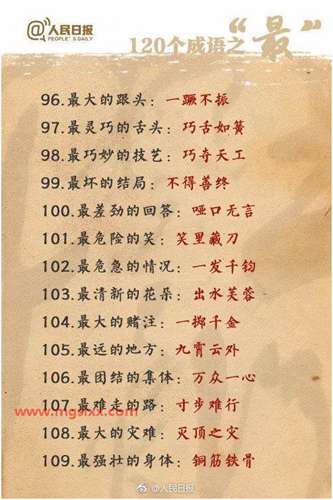 人民日报
PEOPLE'S DAILY
120个成语之“最”
96.最大的跟头：一蹶不振
97.最灵巧的舌头：巧舌如簧
98.最巧妙的技艺：巧夺天工
99.最坏的结局：不得善终
100.最差劲的回答：哑口无言
101.最危险的笑：笑里藏刀
102.最危急的情况：一发千钧
103.最清新的花朵：出水芙蓉
104.最大的赌注：一掷千金
105.最远的地方：九霄云外
106.最团结的集体：万众一心
107.最难走的路：寸步难行
www.mgsixx.com
108.最大的灾难：灭顶之灾
109.最强壮的身体：铜筋铁骨
@人民日报